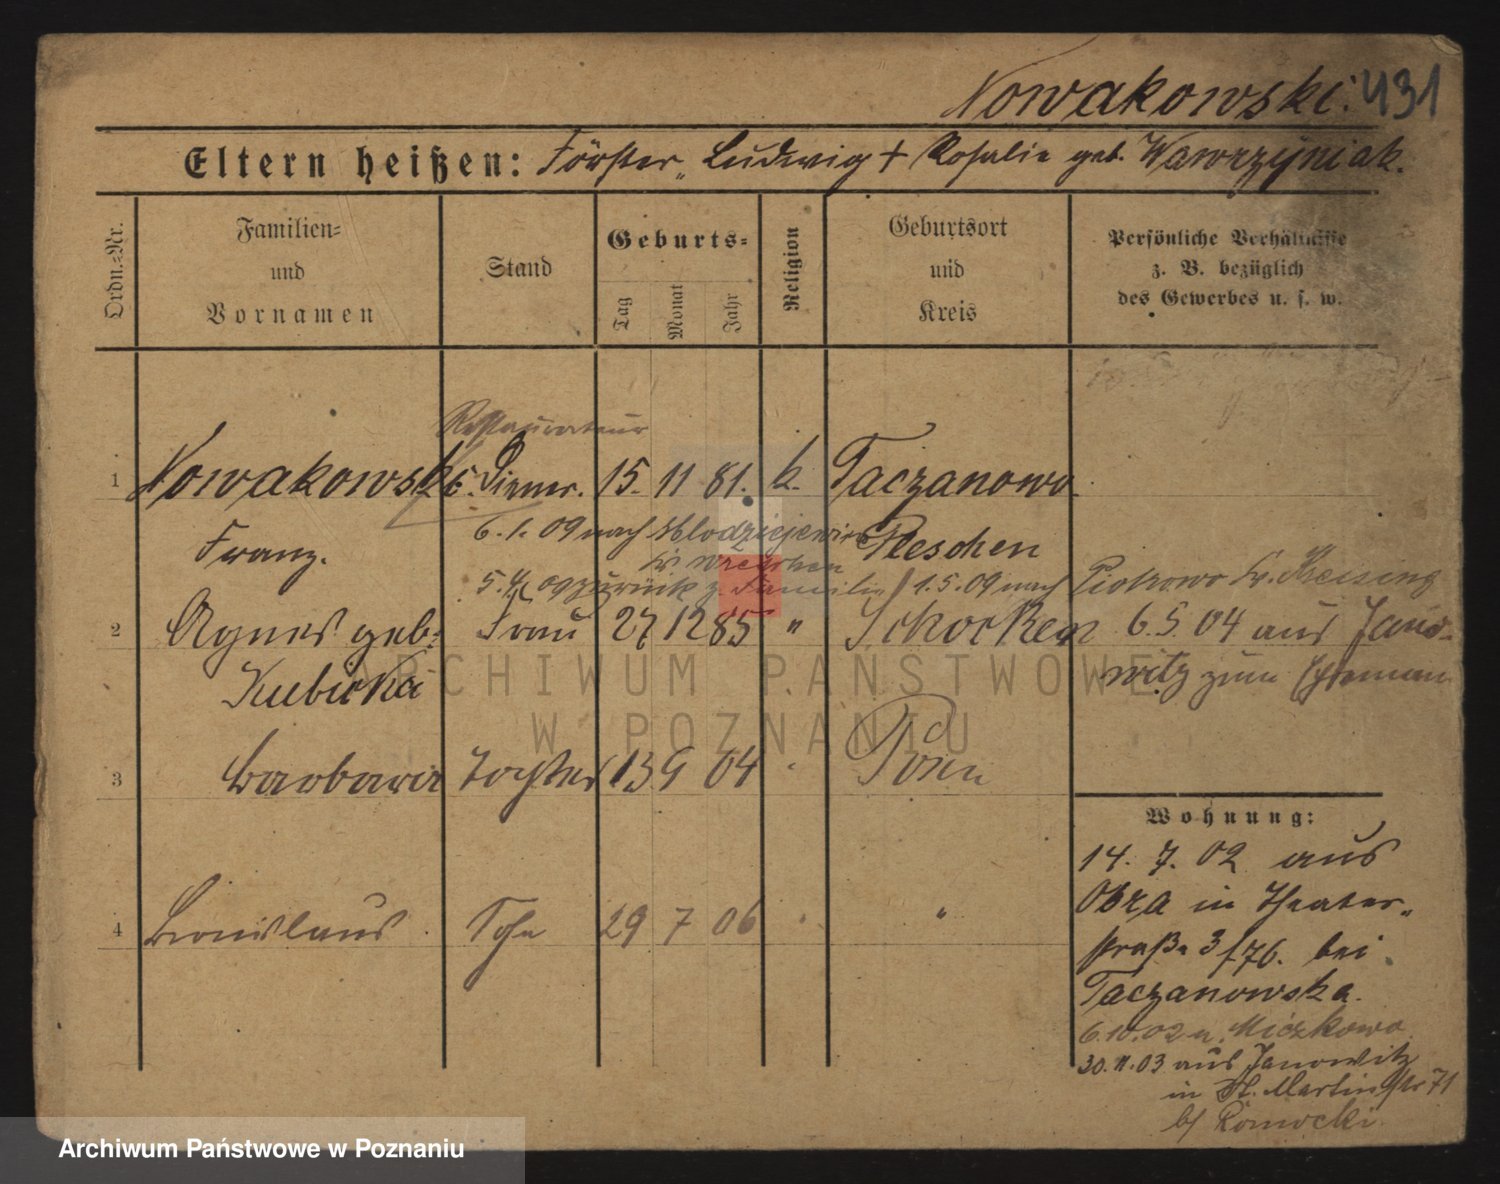 Nowakowski. 431
Eltern heißen: Förster Ludwig + Rosalie geb. Wawrzyniak.
Ordn.=Nr.
Familien=
und
Vornamen
Stand
Geburts=
Tag
Monat
Jahr
Religion
Geburtsort
und
Kreis
Persönliche Verhältnisse
z. B. bezüglich
des Gewerbes u. s. w.
Restaurateur
1 Nowakowski Diener. 15. 11 81. k. Taczanowo
Franz. Pleschen
6. 1. 09 nach Mlodziejewice
Kr. Wreschen
5. 4. 09 zurück z. Familie / 1. 5. 09 nach Piotrowo Kr.
2 Agnes geb. Frau 27 12 85 " Schocken 6. 5. 04 aus Jano-
Kubicka witz zum Ehemann
3 Barbara Tochter 13 9 04 " Posen
4 Bronislaus Sohn 29 7 06 " "
Wohnung:
14. 7. 02 aus
Obra in Theater-
straße 3 /76. bei
Taczanowska.
6. 10. 02 n. Miczkowo
30. 11. 03 aus Janowitz
in St. Martinstr 71
b/
ARCHIWUM PAŃSTWOWE
W POZNANIU
Archiwum Państwowe w Poznaniu